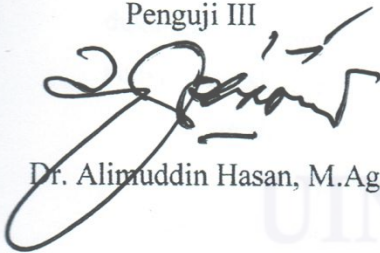 Penguji III
Dr. Alimuddin Hasan, M.Ag
UIN